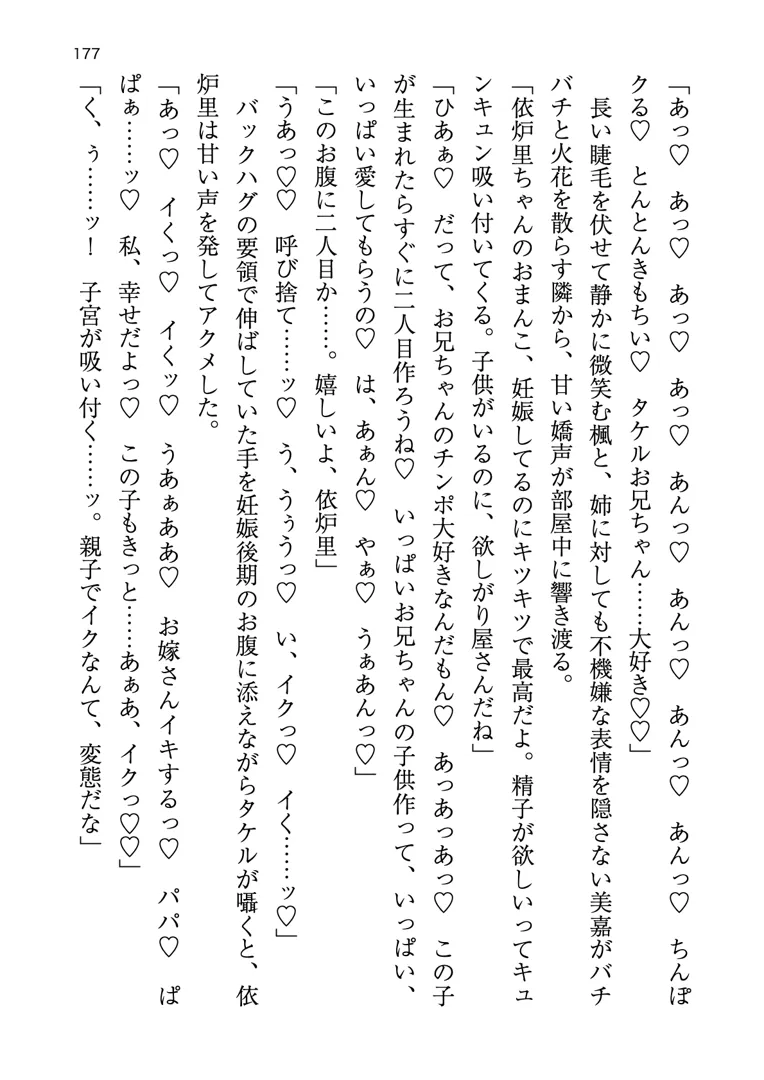 177
「あっ♡　あっ♡　あっ♡　あっ♡　あんっ♡　あんっ♡　あんっ♡　あんっ♡　ちんぽ
クる♡　とんとんきもちい♡　タケルお兄ちゃん……大好き♡♡」
　長い睫毛を伏せて静かに微笑む楓と、姉に対しても不機嫌な表情を隠さない美嘉がバチ
バチと火花を散らす隣から、甘い嬌声が部屋中に響き渡る。
「依炉里ちゃんのおまんこ、妊娠してるのにキツキツで最高だよ。精子が欲しいってキュ
ンキュン吸い付いてくる。子供がいるのに、欲しがり屋さんだね」
「ひあぁ♡　だって、お兄ちゃんのチンポ大好きなんだもん♡　あっあっあっ♡　この子
が生まれたらすぐに二人目作ろうね♡　いっぱいお兄ちゃんの子供作って、いっぱい、
いっぱい愛してもらうの♡　は、あぁん♡　やぁ♡　うぁあんっ♡」
「このお腹に二人目か……。嬉しいよ、依炉里」
「うあっ♡♡　呼び捨て……ッ♡　う、うぅうっ♡　い、イクっ♡　イく……ッ♡」
　バックハグの要領で伸ばしていた手を妊娠後期のお腹に添えながらタケルが囁くと、依
炉里は甘い声を発してアクメした。
「あっ♡　イくっ♡　イくッ♡　うあぁああ♡　お嫁さんイキするっ♡　パパ♡　ぱ
ぱぁ……ッ♡　私、幸せだよっ♡　この子もきっと……あぁあ、イクっ♡♡」
「く、ぅ……ッ！　子宮が吸い付く……ッ。親子でイクなんて、変態だな」